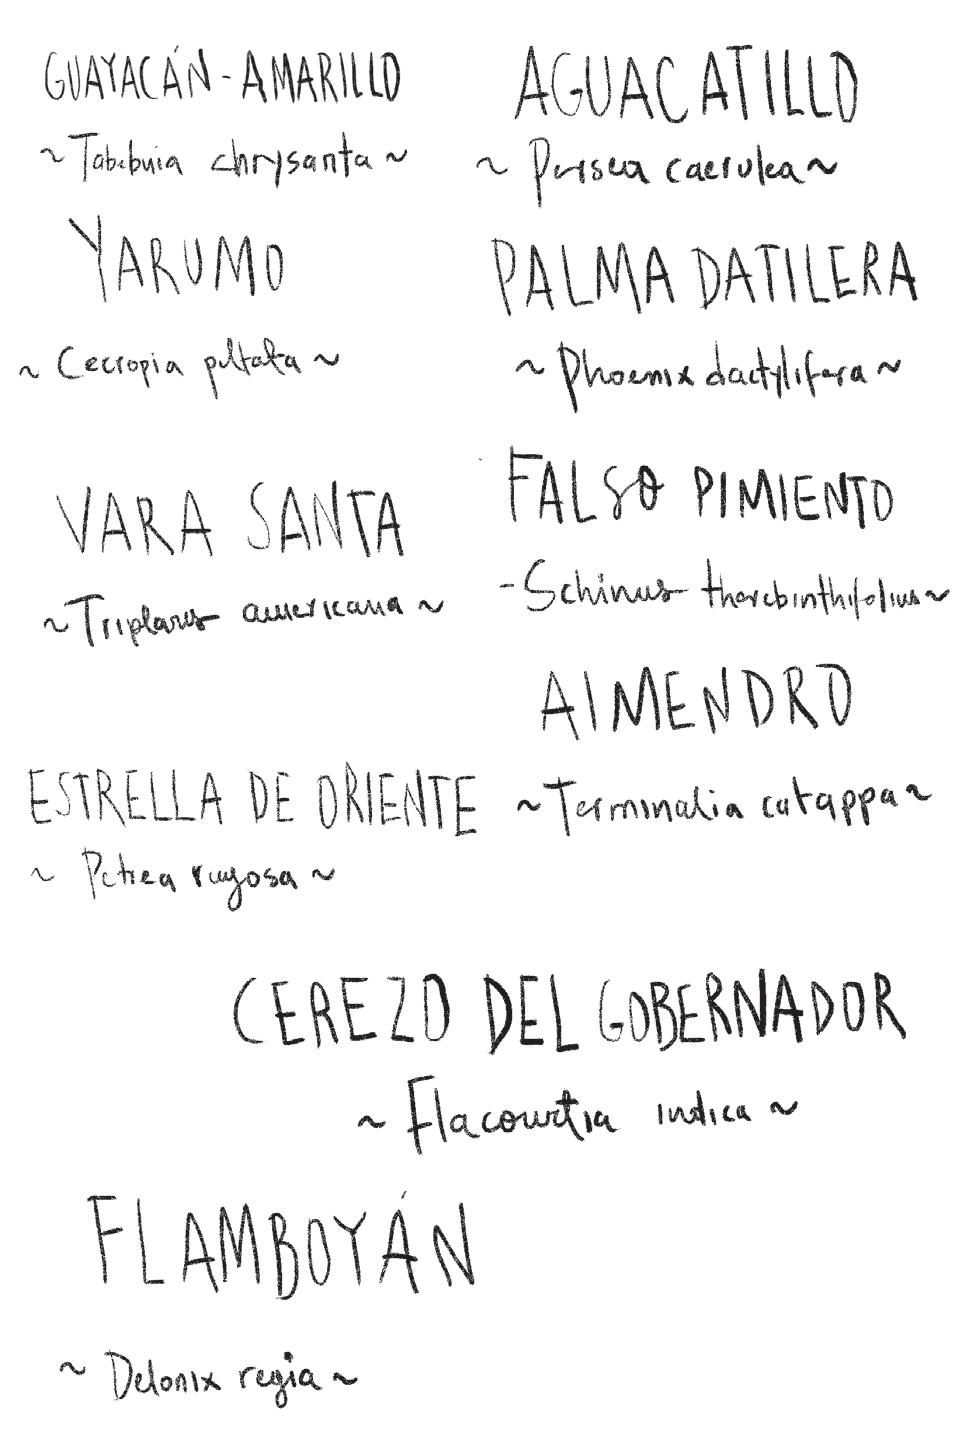 GUAYACÁN-AMARILLO
~Tabebuia chrysanta~
AGUACATILLO
~Persea caerulea~
YARUMO
~Cecropia peltata~
PALMA DATILERA
~Phoenix dactylifera~
VARA SANTA
~Triplaris americana~
FALSO PIMIENTO
-Schinus therebinthifolius~
AlMENDRO
~Terminalia catappa~
ESTRELLA DE ORIENTE
~Petrea rugosa~
CEREZO DEL GOBERNADOR
~Flacourtia indica~
FLAMBOYÁN
~Delonix regia~